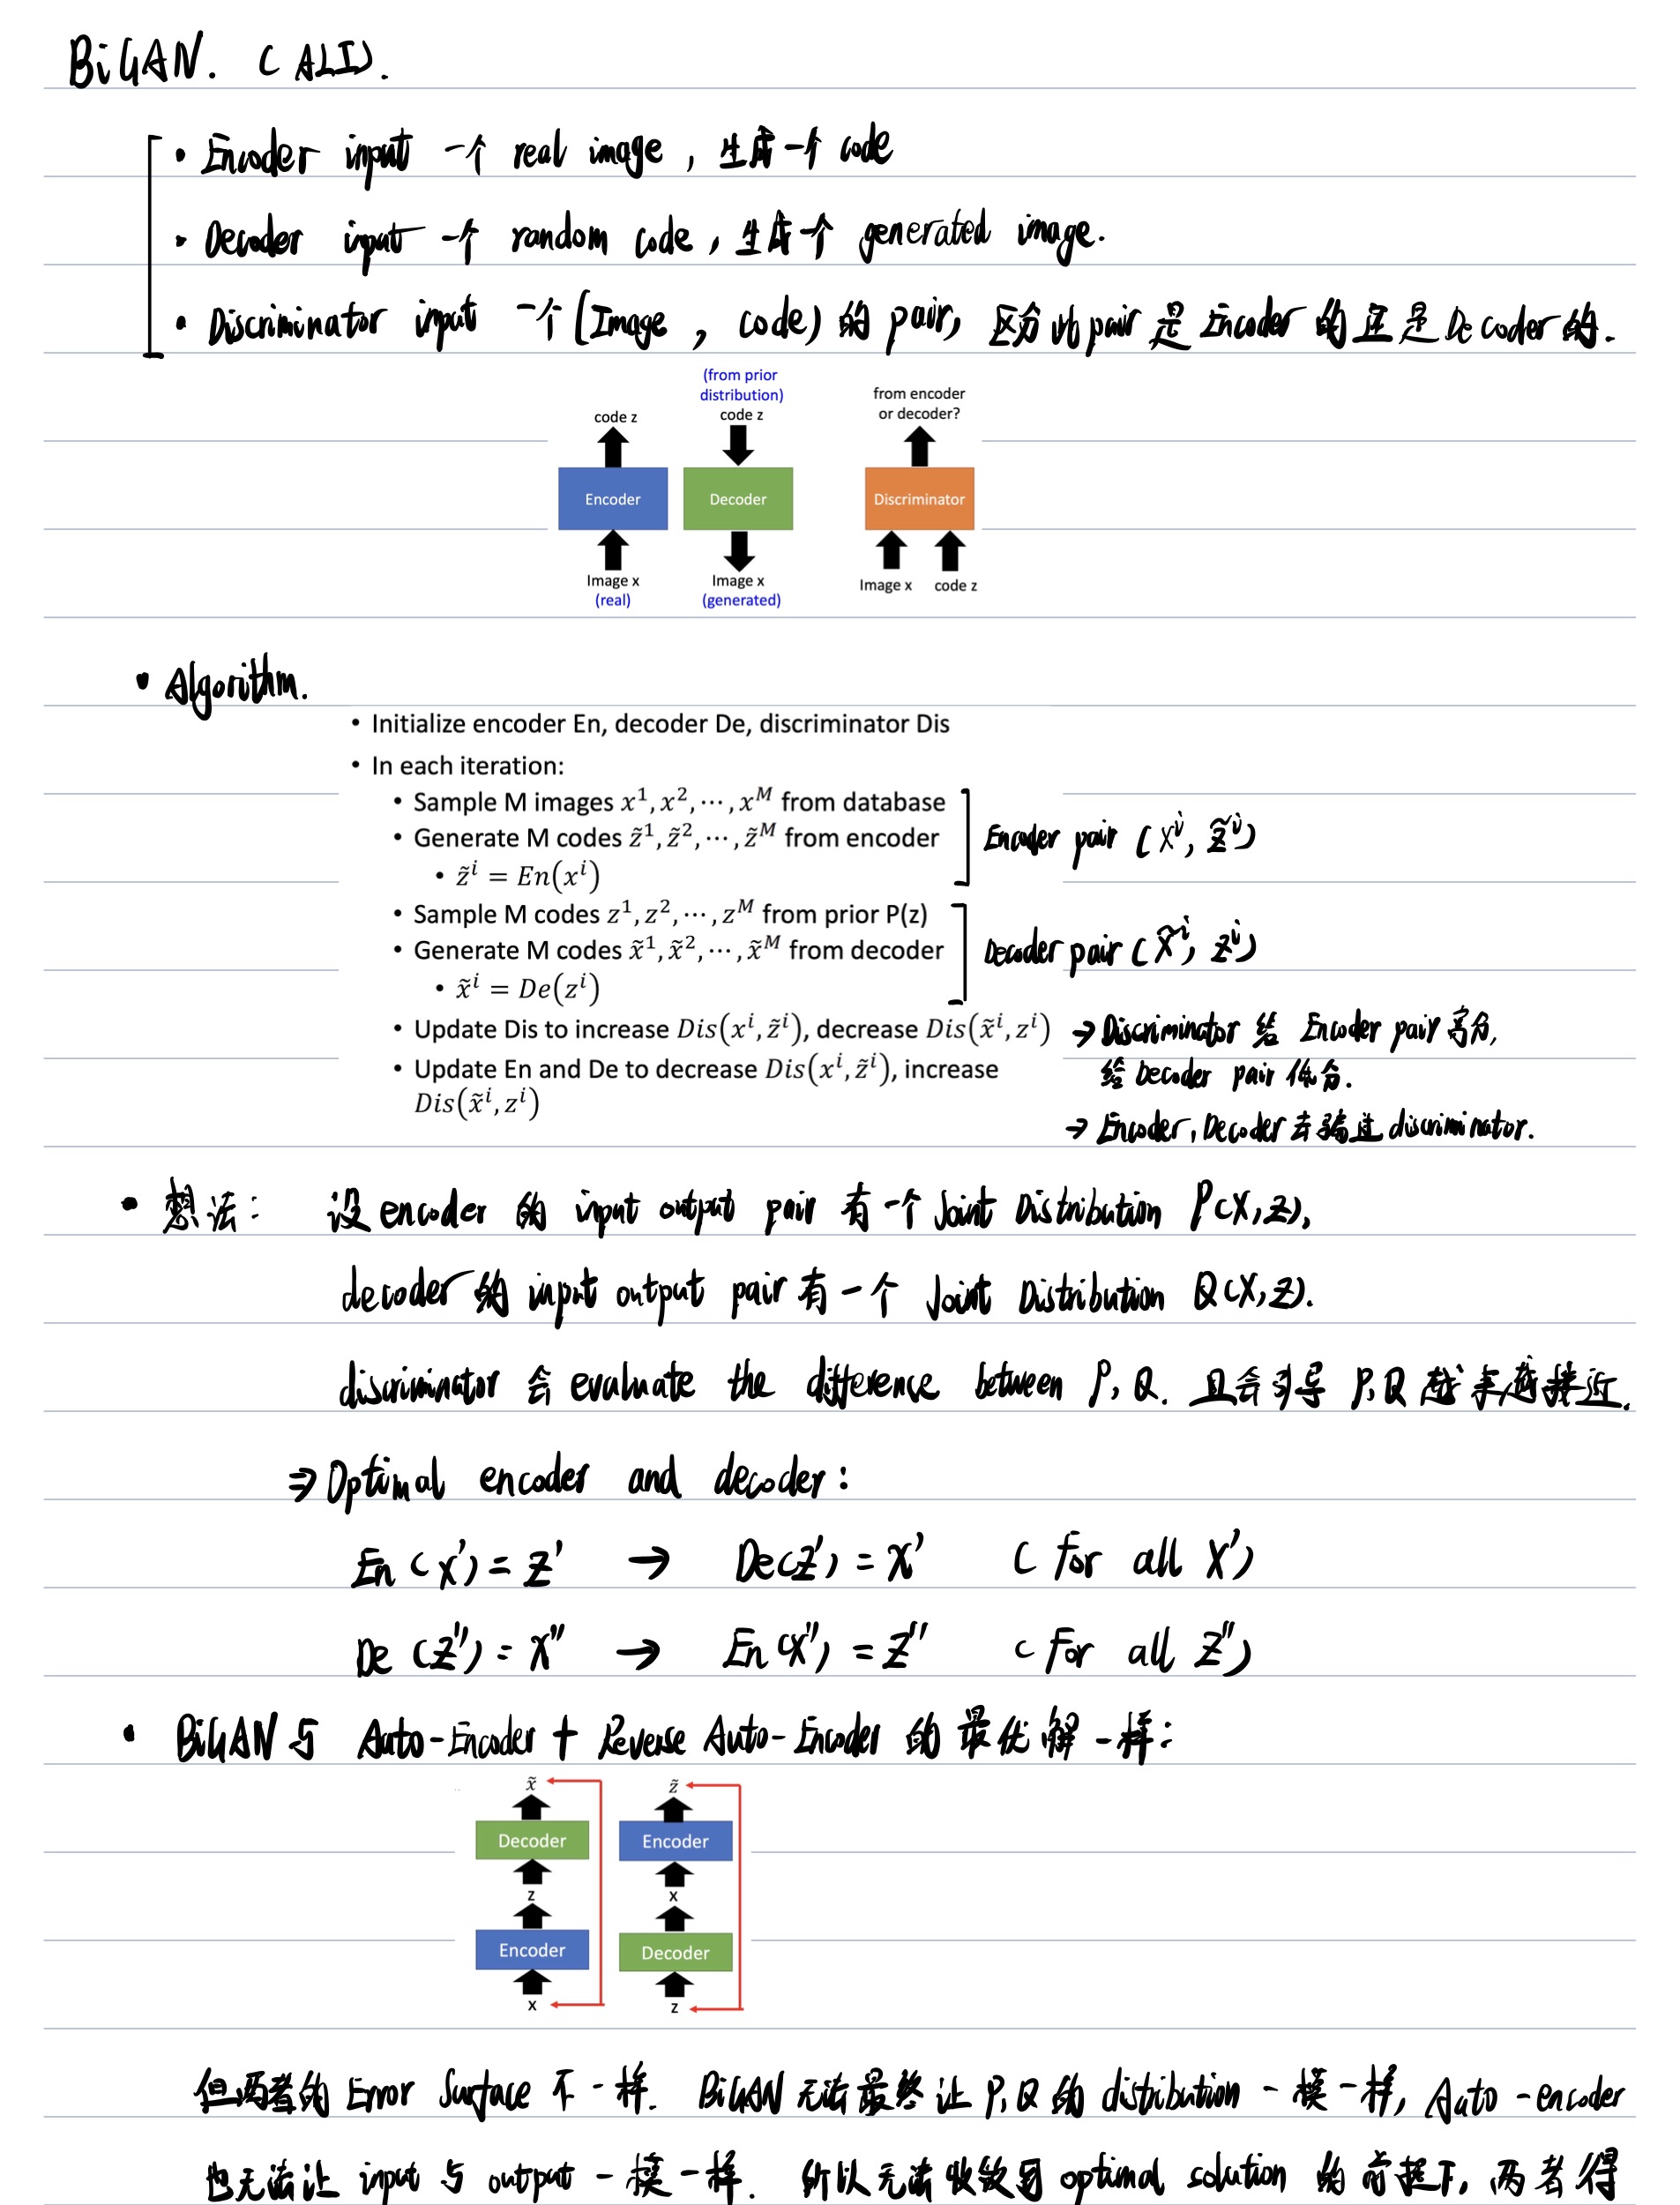 BiGAN. (ALI).
• Encoder input 一个 real image , 生成一个 code
• Decoder input 一个 random code , 生成一个 generated image.
• Discriminator input 一个 (Image , code) 的 pair, 区分此 pair 是 Encoder 的还是 Decoder 的.
(from prior distribution)
code z
code z
from encoder or decoder?
Encoder
Decoder
Discriminator
Image x
(real)
Image x
(generated)
Image x
code z
• Algorithm.
• Initialize encoder En, decoder De, discriminator Dis
• In each iteration:
• Sample M images x¹, x², ⋯, xᴹ from database
• Generate M codes z̃¹, z̃², ⋯, z̃ᴹ from encoder
• z̃ⁱ = En(xⁱ)
Encoder pair (xⁱ, z̃ⁱ)
• Sample M codes z¹, z², ⋯, zᴹ from prior P(z)
• Generate M codes x̃¹, x̃², ⋯, x̃ᴹ from decoder
• x̃ⁱ = De(zⁱ)
Decoder pair (x̃ⁱ, zⁱ)
• Update Dis to increase Dis(xⁱ, z̃ⁱ), decrease Dis(x̃ⁱ, zⁱ)
→ Discriminator 给 Encoder pair 高分,
给 Decoder pair 低分.
• Update En and De to decrease Dis(xⁱ, z̃ⁱ), increase
Dis(x̃ⁱ, zⁱ)
→ Encoder, Decoder 去骗过 discriminator.
• 想法: 设 encoder 的 input output pair 有一个 Joint Distribution P(X,Z),
decoder 的 input output pair 有一个 Joint Distribution Q(X,Z).
discriminator 会 evaluate the difference between P, Q. 且会引导 P,Q 越来越接近.
⇒ Optimal encoder and decoder:
En (X') = Z' → De(Z') = X' (for all X')
De (Z'') = X'' → En (X'') = Z'' (for all Z'')
• BiGAN 与 Auto-Encoder + Reverse Auto-Encoder 的最优解一样:
x̃
z̃
Decoder
Encoder
z
x
Encoder
Decoder
x
z
但两者的 Error Surface 不一样. BiGAN 无法最终让 P,Q 的 distribution 一模一样, Auto-encoder
也无法让 input 与 output 一模一样. 所以无法收敛到 optimal solution 的前提下, 两者得